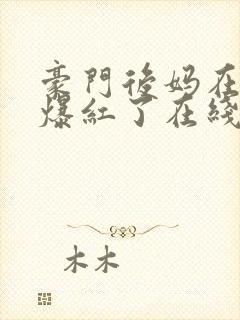 豪門後妈在
爆紅了在綫
木木